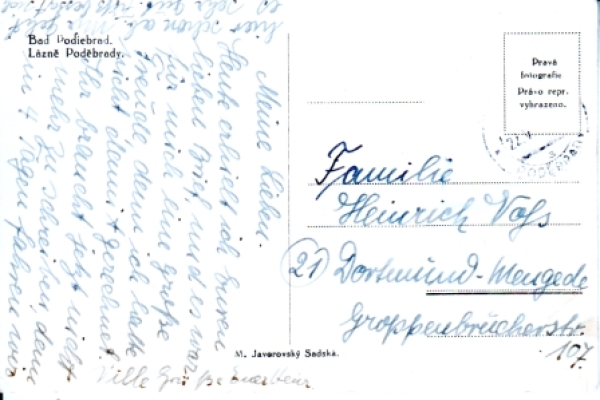 Bad Podiebrad.
Lázně Poděbrady.
Meine Lieben
Heute erhielt ich Euren
lieben Brief und es war
für mich eine große
Freude, denn ich hatte
nicht damit gerechnet
Ihr braucht jetzt nicht
mehr zu schreiben, denn
in 4 Tagen fahren wir
hier schon ab.
es
Viele Grüße Euer
M. Javorovský Sadská.
Pravá
fotografie
Právo repr.
vyhrazeno.
Familie
Heinrich Voß
(21) Dortmund-Mengede
Groppenbrucherstr.
107.